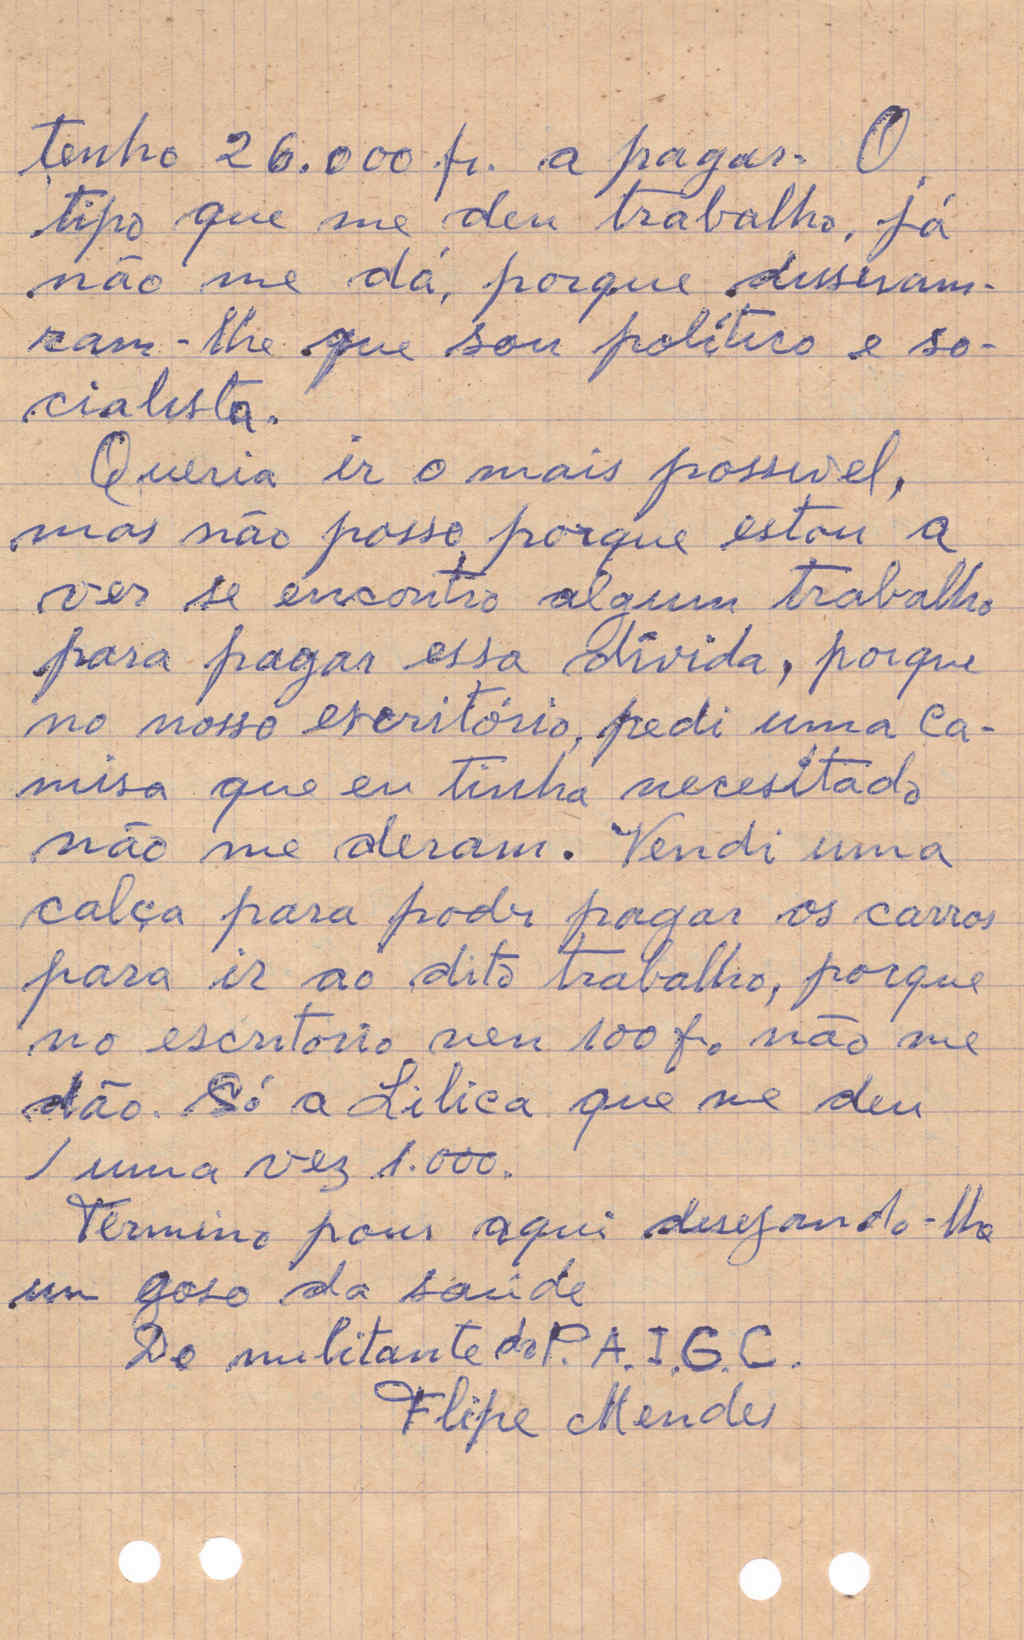 tenho 26.000 fr. a pagar. O
tipo que me deu trabalho, já
não me dá, porque disseram-
ram-lhe que sou político e so-
cialista.
Queria ir o mais possivel,
mas não posso, porque estou a
ver se encontro algum trabalho
para pagar essa dívida, porque
no nosso escritório, pedi uma ca-
misa que eu tinha necesitado
não me deram. Vendi uma
calça para poder pagar os carros
para ir ao dito trabalho, porque
no escritorio nen 100 f. não me
dão. Só a Lilica que me deu
/ uma vez 1.000.
Termino pour aqui desejando-lhe
um goso da saúde
Do militante do P.A.I.G.C.
Flipe Mendes